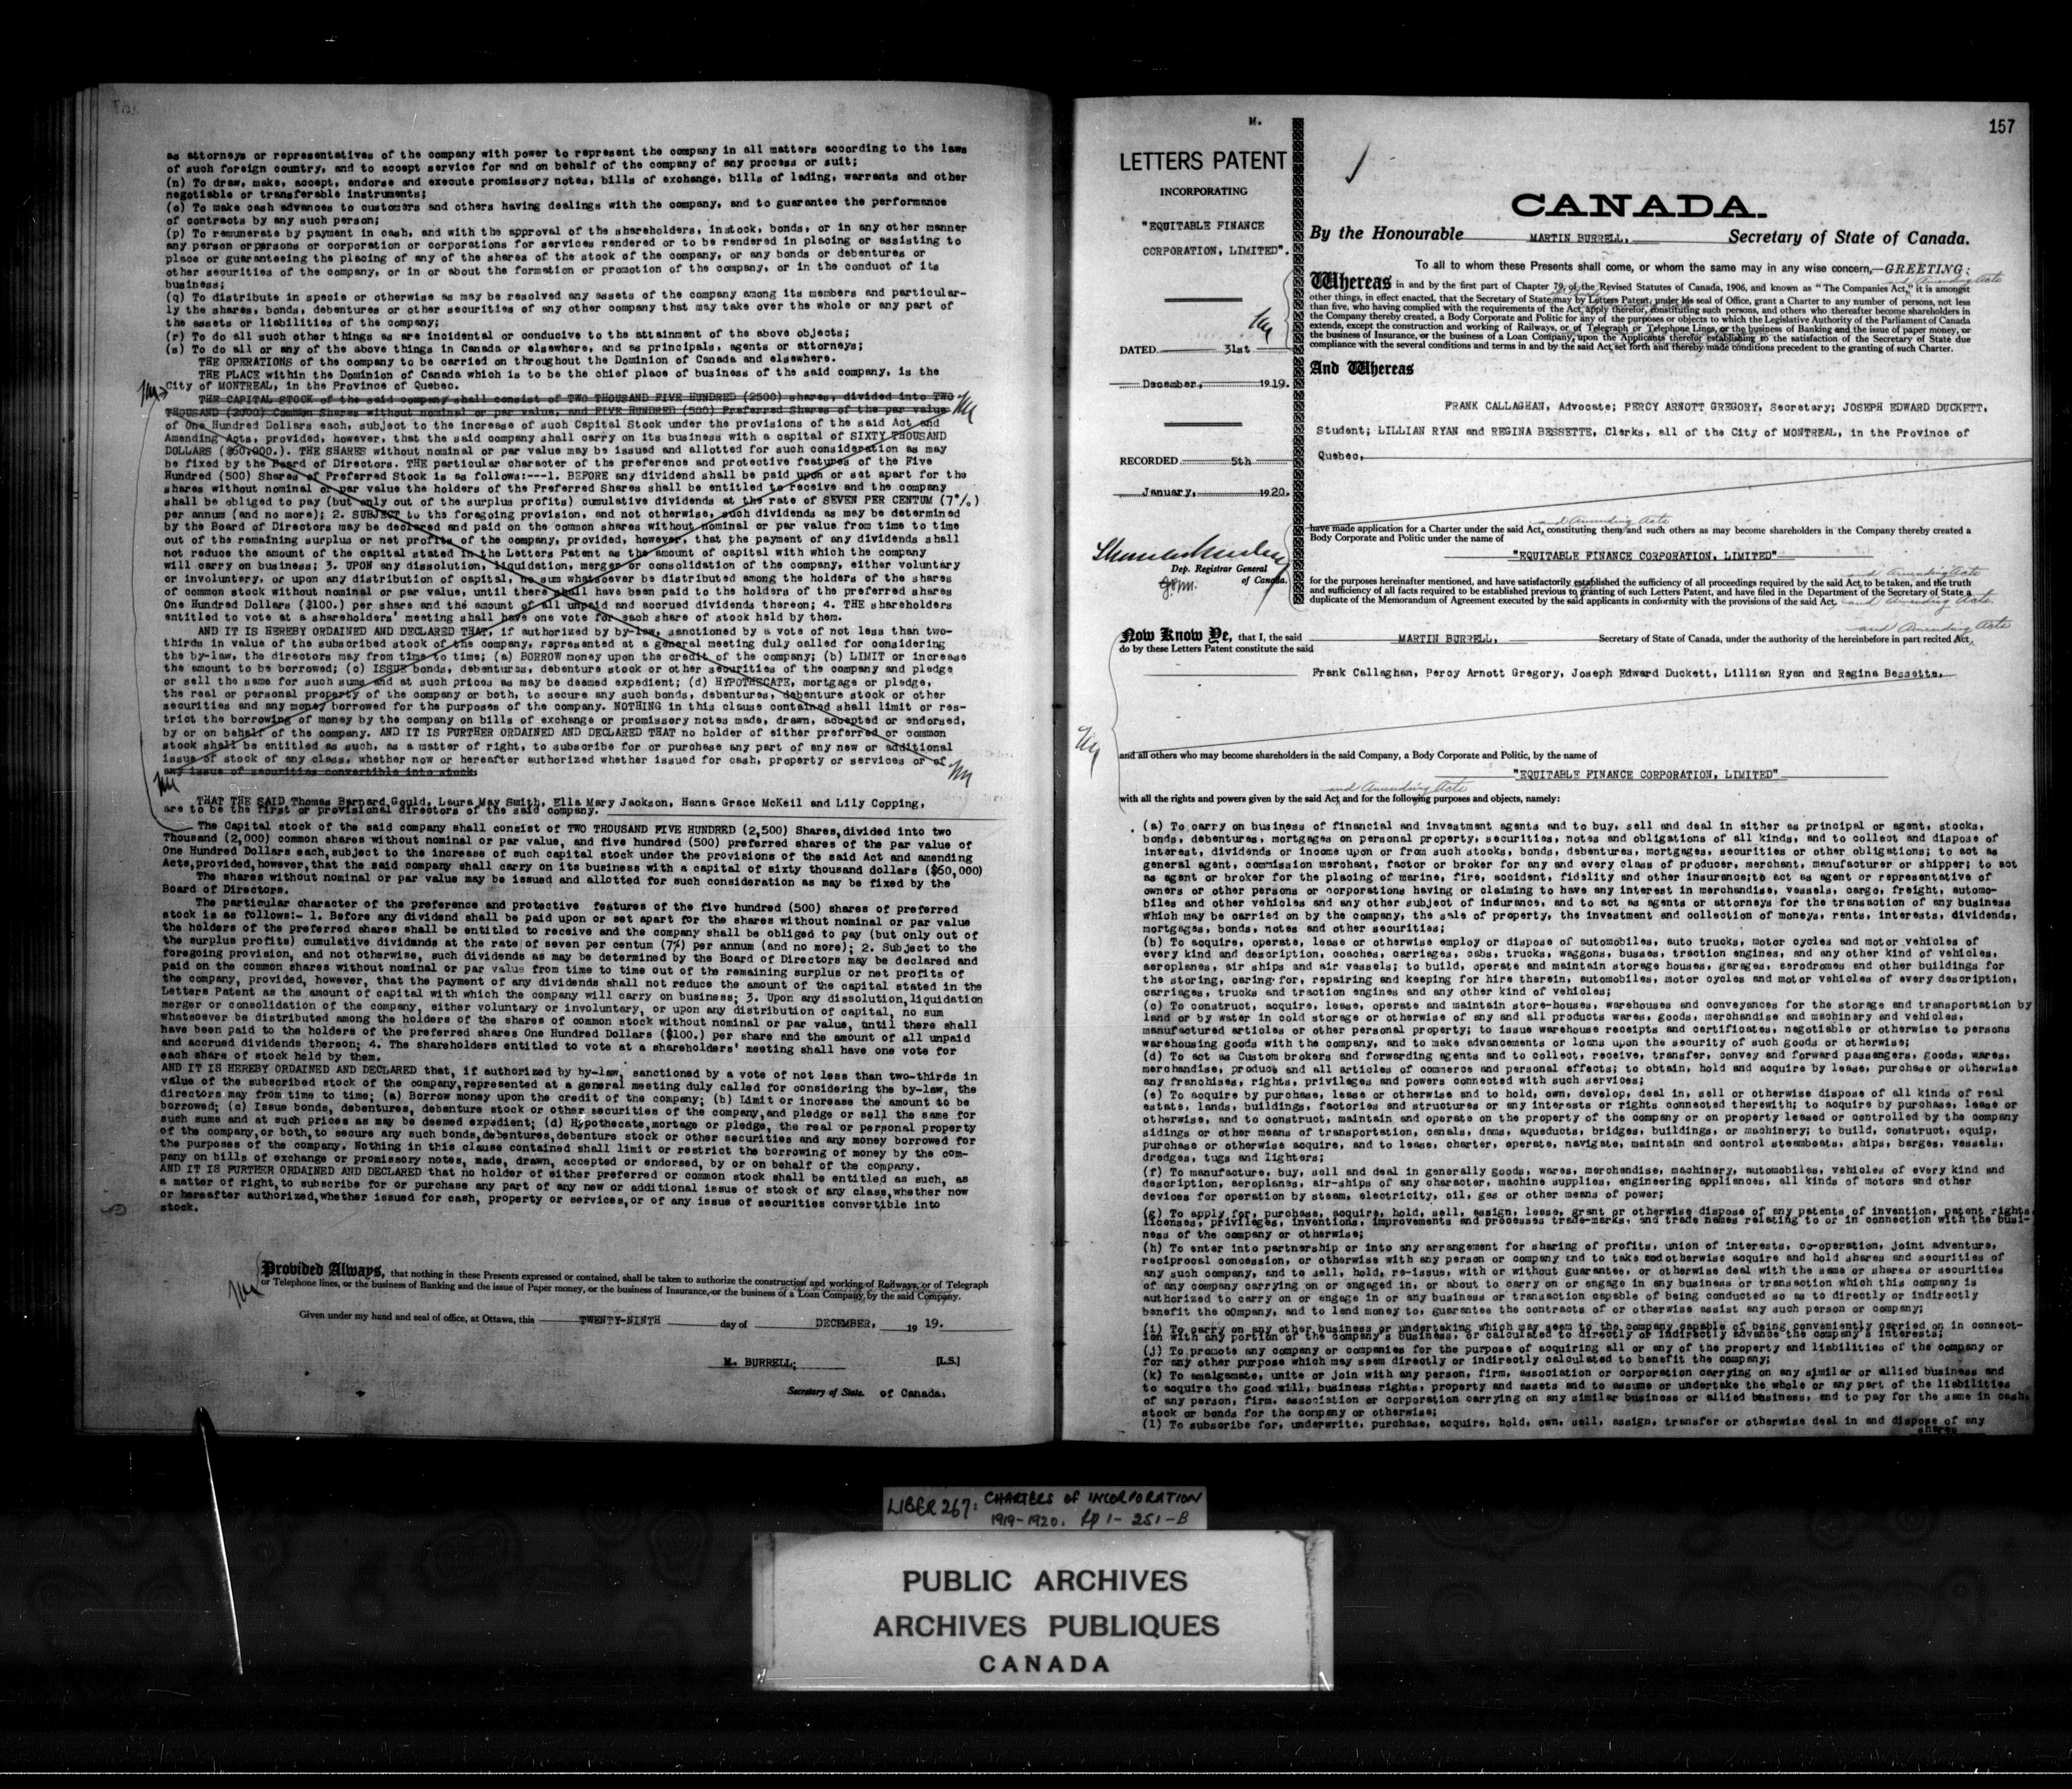 as attorneys or representatives of the company with power to represent the company in all matters according to the laws
of such foreign country, and to accept service for and on behalf of the company of any process or suit;
(n) To draw, make, accept, endorse and execute promissory notes, bills of exchange, bills of lading, warrants and other
negotiable or transferable instruments;
(o) To make cash advances to customers and others having dealings with the company, and to guarantee the performance
of contracts by any such person;
(p) To remunerate by payment in cash, and with the approval of the shareholders, instock, bonds, or in any other manner
any person orpersons or corporation or corporations for services rendered or to be rendered in placing or assisting to
place or guaranteeing the placing of any of the shares of the stock of the company, or any bonds or debentures or
other securities of the company, or in or about the formation or promotion of the company, or in the conduct of its
business;
(q) To distribute in specie or otherwise as may be resolved any assets of the company among its members and particular-
ly the shares, bonds, debentures or other securities of any other company that may take over the whole or any part of
the assets or liabilities of the company;
(r) To do all such other things as are incidental or conducive to the attainment of the above objects;
(s) To do all or any of the above things in Canada or elsewhere, and as principals, agents or attorneys;
THE OPERATIONS of the company to be carried on throughout the Dominion of Canada and elsewhere.
THE PLACE within the Dominion of Canada which is to be the chief place of business of the said company, is the
City of MONTREAL, in the Province of Quebec.
THE CAPITAL STOCK of the said company shall consist of TWO THOUSAND FIVE HUNDRED (2500) shares, divided into TWO
THOUSAND (2000) Common Shares without nominal or par value, and FIVE HUNDRED (500) Preferred Shares of the par value
of One Hundred Dollars each, subject to the increase of such Capital Stock under the provisions of the said Act and
Amending Acts, provided, however, that the said company shall carry on its business with a capital of SIXTY THOUSAND
DOLLARS ($60,000.). THE SHARES without nominal or par value may be issued and allotted for such consideration as may
be fixed by the Board of Directors. THE particular character of the preference and protective features of the Five
Hundred (500) Shares of Preferred Stock is as follows:---1. BEFORE any dividend shall be paid upon or set apart for the
shares without nominal or par value the holders of the Preferred Shares shall be entitled to receive and the company
shall be obliged to pay (but only out of the surplus profits) cumulative dividends at the rate of SEVEN PER CENTUM (7%)
per annum (and no more); 2. SUBJECT to the foregoing provision, and not otherwise, such dividends as may be determined
by the Board of Directors may be declared and paid on the common shares without nominal or par value from time to time
out of the remaining surplus or net profits of the company, provided, however, that the payment of any dividends shall
not reduce the amount of the capital stated in the Letters Patent as the amount of capital with which the company
will carry on business; 3. UPON any dissolution, liquidation, merger or consolidation of the company, either voluntary
or involuntery, or upon any distribution of capital, no sum whatsoever be distributed among the holders of the shares
of common stock without nominal or par value, until there shall have been paid to the holders of the preferred shares
One Hundred Dollars ($100.) per share and the amount of all unpaid and accrued dividends thereon; 4. THE shareholders
entitled to vote at a shareholders' meeting shall have one vote for each share of stock held by them.
AND IT IS HEREBY ORDAINED AND DECLARED THAT, if authorized by by-law, sanctioned by a vote of not less than two-
thirds in value of the subscribed stock of the company, represented at a general meeting duly called for considering
the by-law, the directors may from time to time; (a) BORROW money upon the credit of the company; (b) LIMIT or increase
the amount to be borrowed; (c) ISSUE bonds, debentures, debenture stock or other securities of the company and pledge
or sell the same for such sums and at such prices as may be deemed expedient; (d) HYPOTHECATE, mortgage or pledge,
the real or personal property of the company or both, to secure any such bonds, debentures, debenture stock or other
securities and any money borrowed for the purposes of the company. NOTHING in this clause contained shall limit or res-
trict the borrowing of money by the company on bills of exchange or promissory notes made, drawn, accepted or endorsed,
by or on behalf of the company. AND IT IS FURTHER ORDAINED AND DECLARED THAT no holder of either preferred or common
stock shall be entitled as such, as a matter of right, to subscribe for or purchase any part of any new or additional
issue of stock of any class, whether now or hereafter authorized whether issued for cash, property or services or of
any issue of securities convertible into stock.
THAT THE SAID Thomas Barnard Gould, Laura May Smith, Ella Mary Jackson, Hanna Grace McKeil and Lily Copping,
are to be the first or provisional directors of the said company.
The Capital stock of the said company shall consist of TWO THOUSAND FIVE HUNDRED (2,500) Shares, divided into two
Thousand (2,000) common shares without nominal or par value, and five hundred (500) preferred shares of the par value of
One Hundred Dollars each, subject to the increase of such capital stock under the provisions of the said Act and amending
Acts, provided, however, that the said company shall carry on its business with a capital of sixty thousand dollars ($60,000)
The shares without nominal or par value may be issued and allotted for such consideration as may be fixed by the
Board of Directors.
The particular character of the preference and protective features of the five hundred (500) shares of preferred
stock is as follows:- 1. Before any dividend shall be paid upon or set apart for the shares without nominal or par value
the holders of the preferred shares shall be entitled to receive and the company shall be obliged to pay (but only out of
the surplus profits) cumulative dividends at the rate of seven per centum (7%) per annum (and no more); 2. Subject to the
foregoing provision, and not otherwise, such dividends as may be determined by the Board of Directors may be declared and
paid on the common shares without nominal or par value from time to time out of the remaining surplus or net profits of
the company, provided, however, that the payment of any dividends shall not reduce the amount of the capital stated in the
Letters Patent as the amount of capital with which the company will carry on business; 3. Upon any dissolution, liquidation
merger or consolidation of the company, either voluntary or involuntary, or upon any distribution of capital, no sum
whatsoever be distributed among the holders of the shares of common stock without nominal or par value, until there shall
have been paid to the holders of the preferred shares One Hundred Dollars ($100.) per share and the amount of all unpaid
and accrued dividends thereon; 4. The shareholders entitled to vote at a shareholders' meeting shall have one vote for
each share of stock held by them.
AND IT IS HEREBY ORDAINED AND DECLARED that, if authorized by by-law, sanctioned by a vote of not less than two-thirds in
value of the subscribed stock of the company, represented at a general meeting duly called for considering the by-law, the
directors may from time to time; (a) Borrow money upon the credit of the company; (b) Limit or increase the amount to be
borrowed; (c) Issue bonds, debentures, debenture stock or other securities of the company, and pledge or sell the same for
such sums and at such prices as may be deemed expedient; (d) Hypothecate, mortage or pledge, the real or personal property
of the company, or both, to secure any such bonds, debentures, debenture stock or other securities and any money borrowed for
the purposes of the company. Nothing in this clause contained shall limit or restrict the borrowing of money by the com-
pany on bills of exchange or promissory notes, made, drawn, accepted or endorsed, by or on behalf of the company.
AND IT IS FURTHER ORDAINED AND DECLARED that no holder of either preferred or common stock shall be entitled as such, as
a matter of right, to subscribe for or purchase any part of any new or additional issue of stock of any class, whether now
or hereafter authorized, whether issued for cash, property or services, or of any issue of securities convertible into
stock.
Provided Always, that nothing in these Presents expressed or contained, shall be taken to authorize the construction and working of Railways, or of Telegraph
or Telephone lines, or the business of Banking and the issue of Paper money, or the business of Insurance, or the business of a Loan Company, by the said Company.
Given under my hand and seal of office, at Ottawa, this TWENTY-NINTH day of DECEMBER, 19 19.
M. BURRELL; [L.S.]
Secretary of State. of Canada.
M.
157
LETTERS PATENT
INCORPORATING
"EQUITABLE FINANCE
CORPORATION, LIMITED".
DATED 31st
December, 1919.
RECORDED 5th
January, 1920.
Dep. Registrar General
of Canada.
CANADA.
By the Honourable MARTIN BURRELL, Secretary of State of Canada.
To all to whom these Presents shall come, or whom the same may in any wise concern,—GREETING:
and Amending Acts
Whereas in and by the first part of Chapter 79, of the Revised Statutes of Canada, 1906, and known as "The Companies Act," it is amongst
other things, in effect enacted, that the Secretary of State may by Letters Patent, under his seal of Office, grant a Charter to any number of persons, not less
than five, who having complied with the requirements of the Act, apply therefor, constituting such persons, and others who thereafter become shareholders in
the Company thereby created, a Body Corporate and Politic for any of the purposes or objects to which the Legislative Authority of the Parliament of Canada
extends, except the construction and working of Railways, or of Telegraph or Telephone Lines, or the business of Banking and the issue of paper money, or
the business of Insurance, or the business of a Loan Company, upon the Applicants therefor establishing to the satisfaction of the Secretary of State due
compliance with the several conditions and terms in and by the said Act, set forth and thereby made conditions precedent to the granting of such Charter.
And Whereas
FRANK CALLAGHAN, Advocate; PERCY ARNOTT GREGORY, Secretary; JOSEPH EDWARD DUCKETT,
Student; LILLIAN RYAN and REGINA BESSETTE, Clerks, all of the City of MONTREAL, in the Province of
Quebec,
and Amending Acts
have made application for a Charter under the said Act, constituting them and such others as may become shareholders in the Company thereby created a
Body Corporate and Politic under the name of
"EQUITABLE FINANCE CORPORATION, LIMITED"
and Amending Acts
for the purposes hereinafter mentioned, and have satisfactorily established the sufficiency of all proceedings required by the said Act, to be taken, and the truth
and sufficiency of all facts required to be established previous to granting of such Letters Patent, and have filed in the Department of the Secretary of State a
duplicate of the Memorandum of Agreement executed by the said applicants in conformity with the provisions of the said Act, and Amending Acts.
and Amending Acts
Now Know Ye, that I, the said MARTIN BURRELL, Secretary of State of Canada, under the authority of the hereinbefore in part recited Act,
do by these Letters Patent constitute the said
Frank Callaghan, Percy Arnott Gregory, Joseph Edward Duckett, Lillian Ryan and Regina Bessette,
and all others who may become shareholders in the said Company, a Body Corporate and Politic, by the name of
"EQUITABLE FINANCE CORPORATION, LIMITED"
and Amending Acts
with all the rights and powers given by the said Act, and for the following purposes and objects, namely:
(a) To carry on business of financial and investment agents and to buy, sell and deal in either as principal or agent, stocks,
bonds, debentures, mortgages on personal property, securities, notes and obligations of all kinds, and to collect and dispose of
interest, dividends or income upon or from such stocks, bonds, debentures, mortgages, securities or other obligations; to act as
general agent, commission merchant, factor or broker for any and every class of producer, merchant, manufacturer or shipper; to act
as agent or broker for the placing of marine, fire, accident, fidelity and other insurance;to act as agent or representative of
owners or other persons or corporations having or claiming to have any interest in merchandise, vessels, cargo, freight, automo-
biles and other vehicles and any other subject of indurance, and to act as agents or attorneys for the transaction of any business
which may be carried on by the company, the sale of property, the investment and collection of moneys, rents, interests, dividends,
mortgages, bonds, notes and other securities;
(b) To acquire, operate, lease or otherwise employ or dispose of automobiles, auto trucks, motor cycles and motor vehicles of
every kind and description, coaches, carriages, cabs, trucks, waggons, busses, traction engines, and any other kind of vehicles,
aeroplanes, air ships and air vessels; to build, operate and maintain storage houses, garages, aerodromes and other buildings for
the storing, caring for, repairing and keeping for hire therein, automobiles, motor cycles and motor vehicles of every description,
carriages, trucks and traction engines and any other kind of vehicles;
(c) To construct, acquire, lease, operate and maintain store-houses, warehouses and conveyances for the storage and transportation by
land or by water in cold storage or otherwise of any and all products wares, goods, merchandise and machinery and vehicles,
manufactured articles or other personal property; to issue warehouse receipts and certificates, negotiable or otherwise to persons
warehousing goods with the company, and to make advancements or loans upon the security of such goods or otherwise;
(d) To act as Custom brokers and forwarding agents and to collect, receive, transfer, convey and forward passengers, goods, wares,
merchandise, produce and all articles of commerce and personal effects; to obtain, hold and acquire by lease, purchase or otherwise
any franchises, rights, privileges and powers connected with such services;
(e) To acquire by purchase, lease or otherwise and to hold, own, develop, deal in, sell or otherwise dispose of all kinds of real
estate, lands, buildings, factories and structures or any interests or rights connected therewith; to acquire by purchase, lease or
otherwise, and to construct, maintain and operate on the property of the company or on property leased or controlled by the company
sidings or other means of transportation, canals, dams, aqueducts, bridges, buildings, or machinery; to build, construct, equip,
purchase or otherwise acquire, and to lease, charter, operate, navigate, maintain and control steamboats, ships, barges, vessels,
dredges, tugs and lighters;
(f) To manufacture, buy, sell and deal in generally goods, wares, merchandise, machinery, automobiles, vehicles of every kind and
description, aeroplanes, air-ships of any character, machine supplies, engineering appliances, all kinds of motors and other
devices for operation by steam, electricity, oil, gas or other means of power;
(g) To apply for, purchase, acquire, hold, sell, assign, lease, grant or otherwise dispose of any patents of invention, patent rights,
licenses, privileges, inventions, improvements and processes trade-marks, and trade names relating to or in connection with the busi-
ness of the company or otherwise;
(h) To enter into partnership or into any arrangement for sharing of profits, union of interests, co-operation, joint adventure,
reciprocal concession, or otherwise with any person or company and to take andotherwise acquire and hold shares and securities of
any such company, and to sell, hold, re-issue, with or without guarantee, or otherwise deal with the same or shares or securities
of any company carrying on or engaged in, or about to carry on or engage in any business or transaction which this company is
authorized to carry on or engage in or any business or transaction capable of being conducted so as to directly or indirectly
benefit the company, and to lend money to, guarantee the contracts of or otherwise assist any such person or company;
(i) To carry on any other business or undertaking which may seem to the company capable of being conveniently carried on in connect-
ion with any portion of the company's business, or calculated to directly or indirectly advance the company's interests;
(j) To promote any company or companies for the purpose of acquiring all or any of the property and liabilities of the company or
for any other purpose which may seem directly or indirectly calculated to benefit the company;
(k) To amalgamate, unite or join with any person, firm, association or corporation carrying on any similar or allied business and
to acquire the good will, business rights, property and assets and to assume or undertake the whole or any part of the liabilities
of any person, firm, association or corporation carrying on any similar business or allied business, and to pay for the same in cash,
stock or bonds for the company or otherwise;
(l) To subscribe for, underwrite, purchase, acquire, hold, own, sell, assign, transfer or otherwise deal in and dispose of any
shares
LIBER 267: CHARTERS OF INCORPORATION
1919-1920. pp 1- 251-B
PUBLIC ARCHIVES
ARCHIVES PUBLIQUES
CANADA